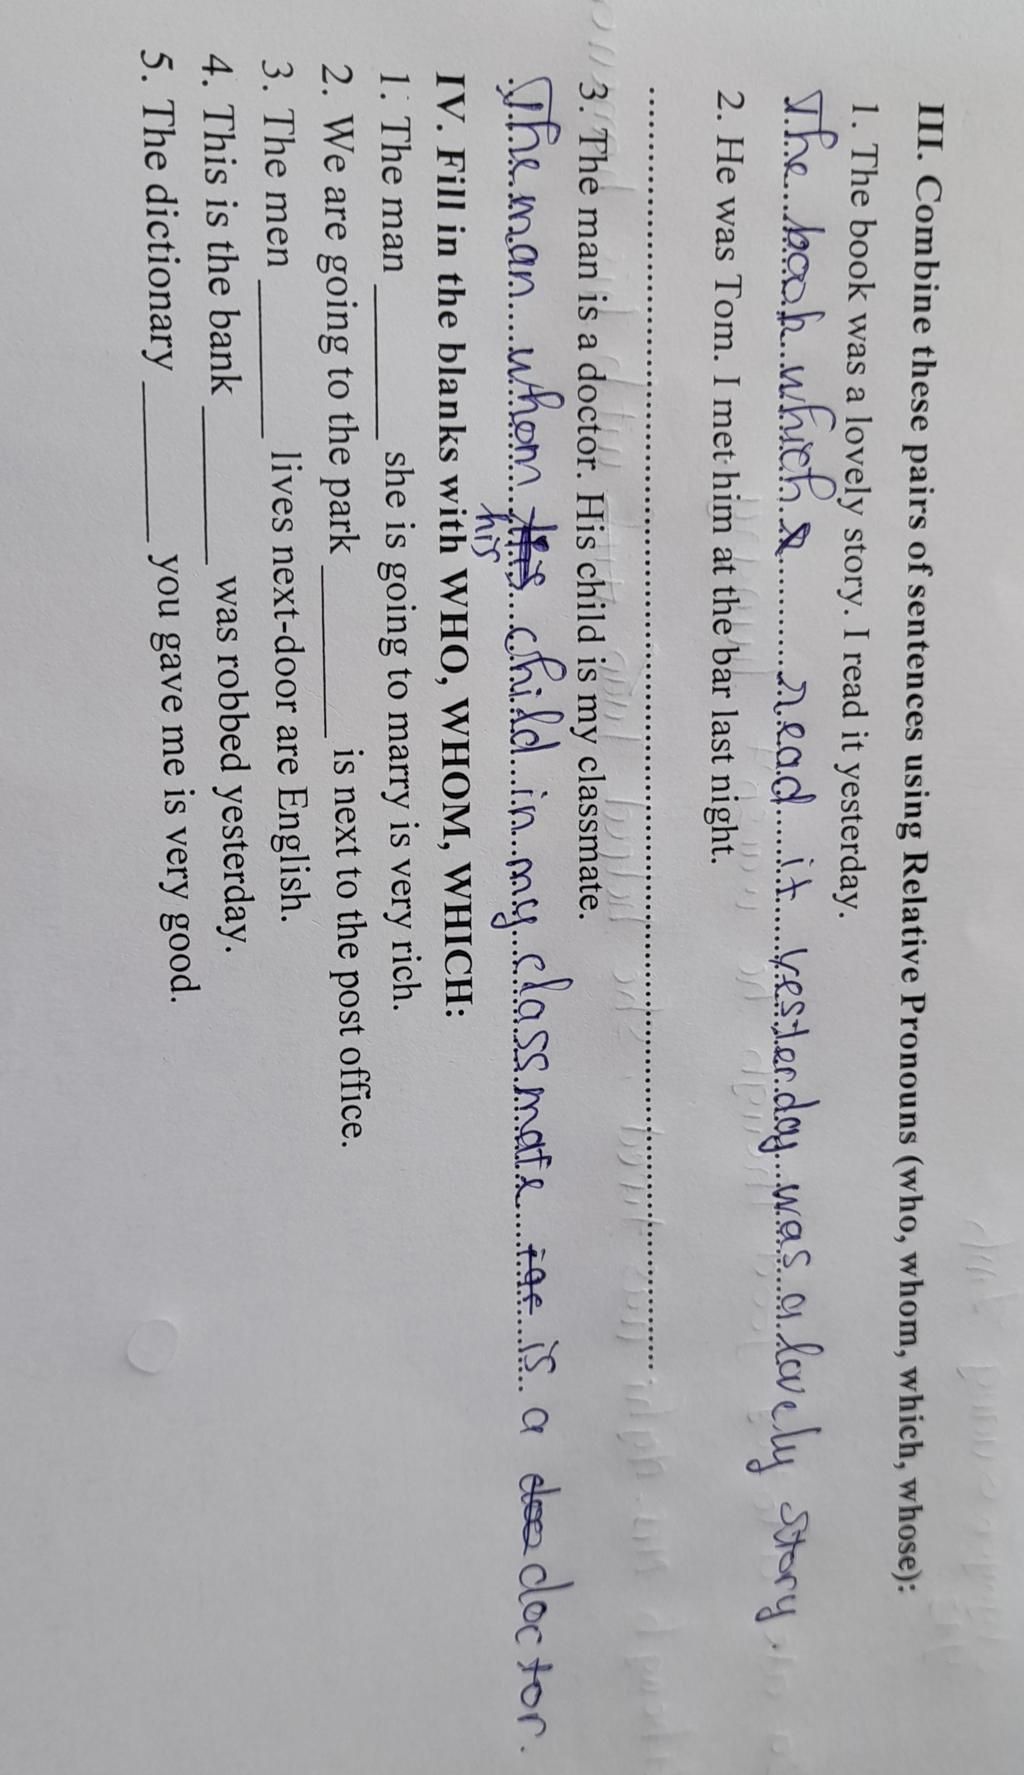 III. Combine these pairs of sentences using Relative Pronouns (who, whom, which, whose):
1. The book was a lovely story. I read it yesterday.
The book which I read it yesterday was a lovely story
2. He was Tom. I met him at the bar last night.
3. The man is a doctor. His child is my classmate.
The man whom his child in my classmate is a doctor.
IV. Fill in the blanks with WHO, WHOM, WHICH:
1. The man ________ she is going to marry is very rich.
2. We are going to the park ________ is next to the post office.
3. The men ________ lives next-door are English.
4. This is the bank ________ was robbed yesterday.
5. The dictionary ________ you gave me is very good.